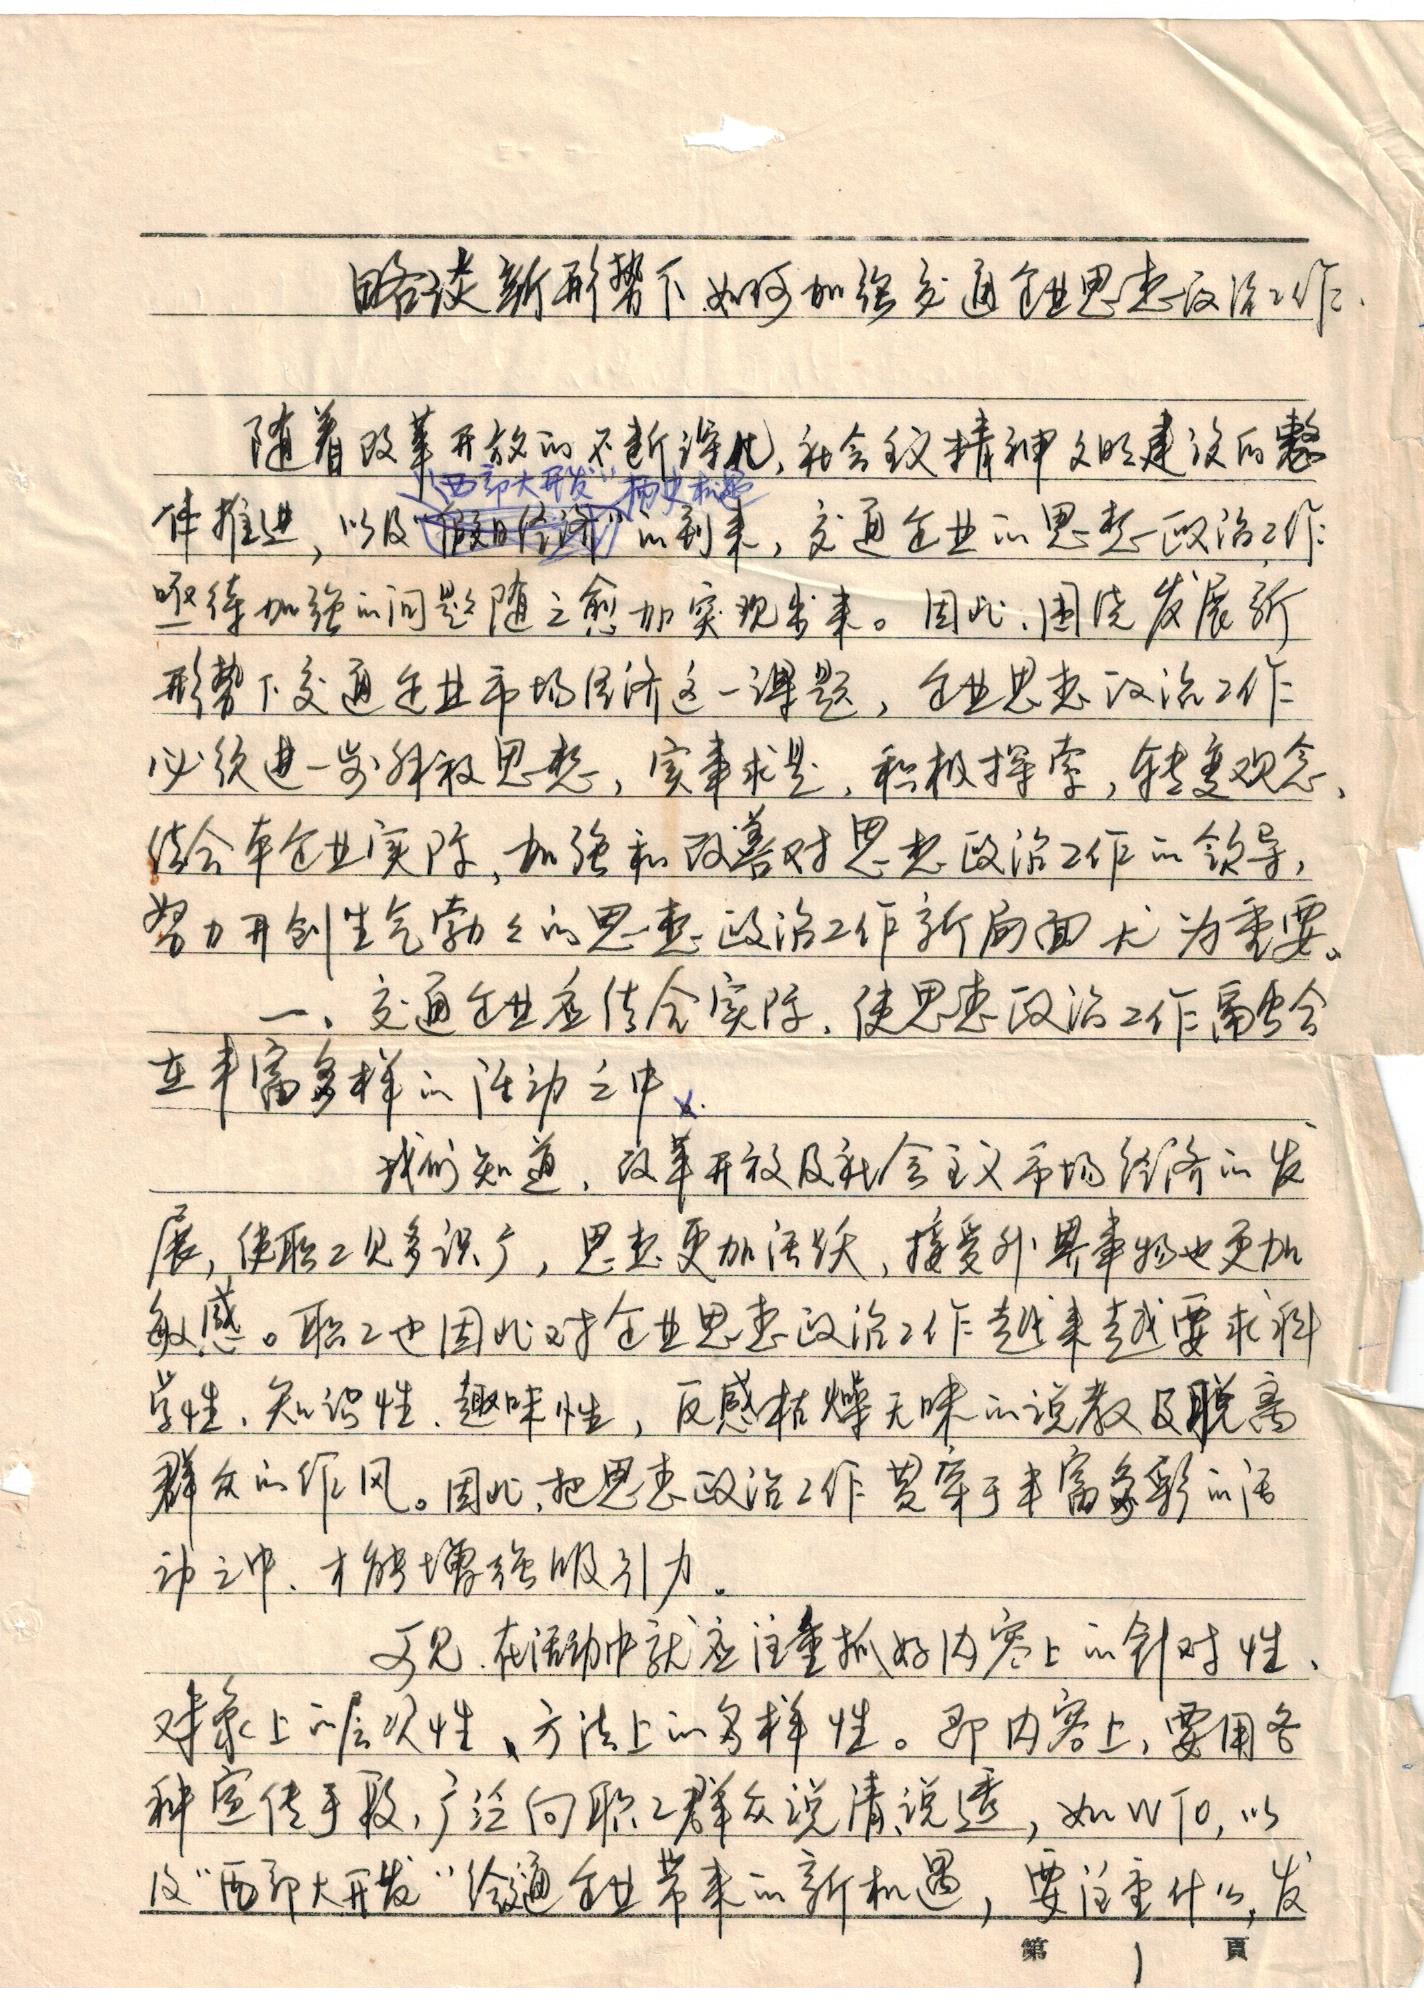 略谈新形势下如何加强交通企业思想政治工作.
随着改革开放的不断深化,社会主义精神文明建设的整
“西部大开发”历史机遇
体推进,以及“假日经济”的到来,交通企业的思想政治工作
亟待加强的问题随之愈加突现出来。因此、围绕发展新
形势下交通企业市场经济这一课题,企业思想政治工作
必须进一步解放思想,实事求是,积极探索,转变观念、
结合本企业实际,加强和改善对思想政治工作的领导,
努力开创生气勃々的思想政治工作新局面尤为重要。
一、交通企业应结合实际、使思想政治工作融会
在丰富多样的活动之中
我们知道、改革开放及社会主义市场经济的发
展,使职工见多识广,思想更加活跃,接受外界事物也更加
敏感。职工也因此对企业思想政治工作越来越要求科
学性、知识性、趣味性,反感枯燥无味的说教及脱离
群众的作风。因此、把思想政治工作贯穿于丰富多彩的活
动之中、才能增强吸引力。
可见、在活动中就应注重抓好内容上的针对性、
对象上的层次性、方法上的多样性。即内容上,要用各
种宣传手段,广泛向职工群众说清说透,如WTO,以
及“西部大开发”给交通企业带来的新机遇,要注重什么,发
第 1 頁